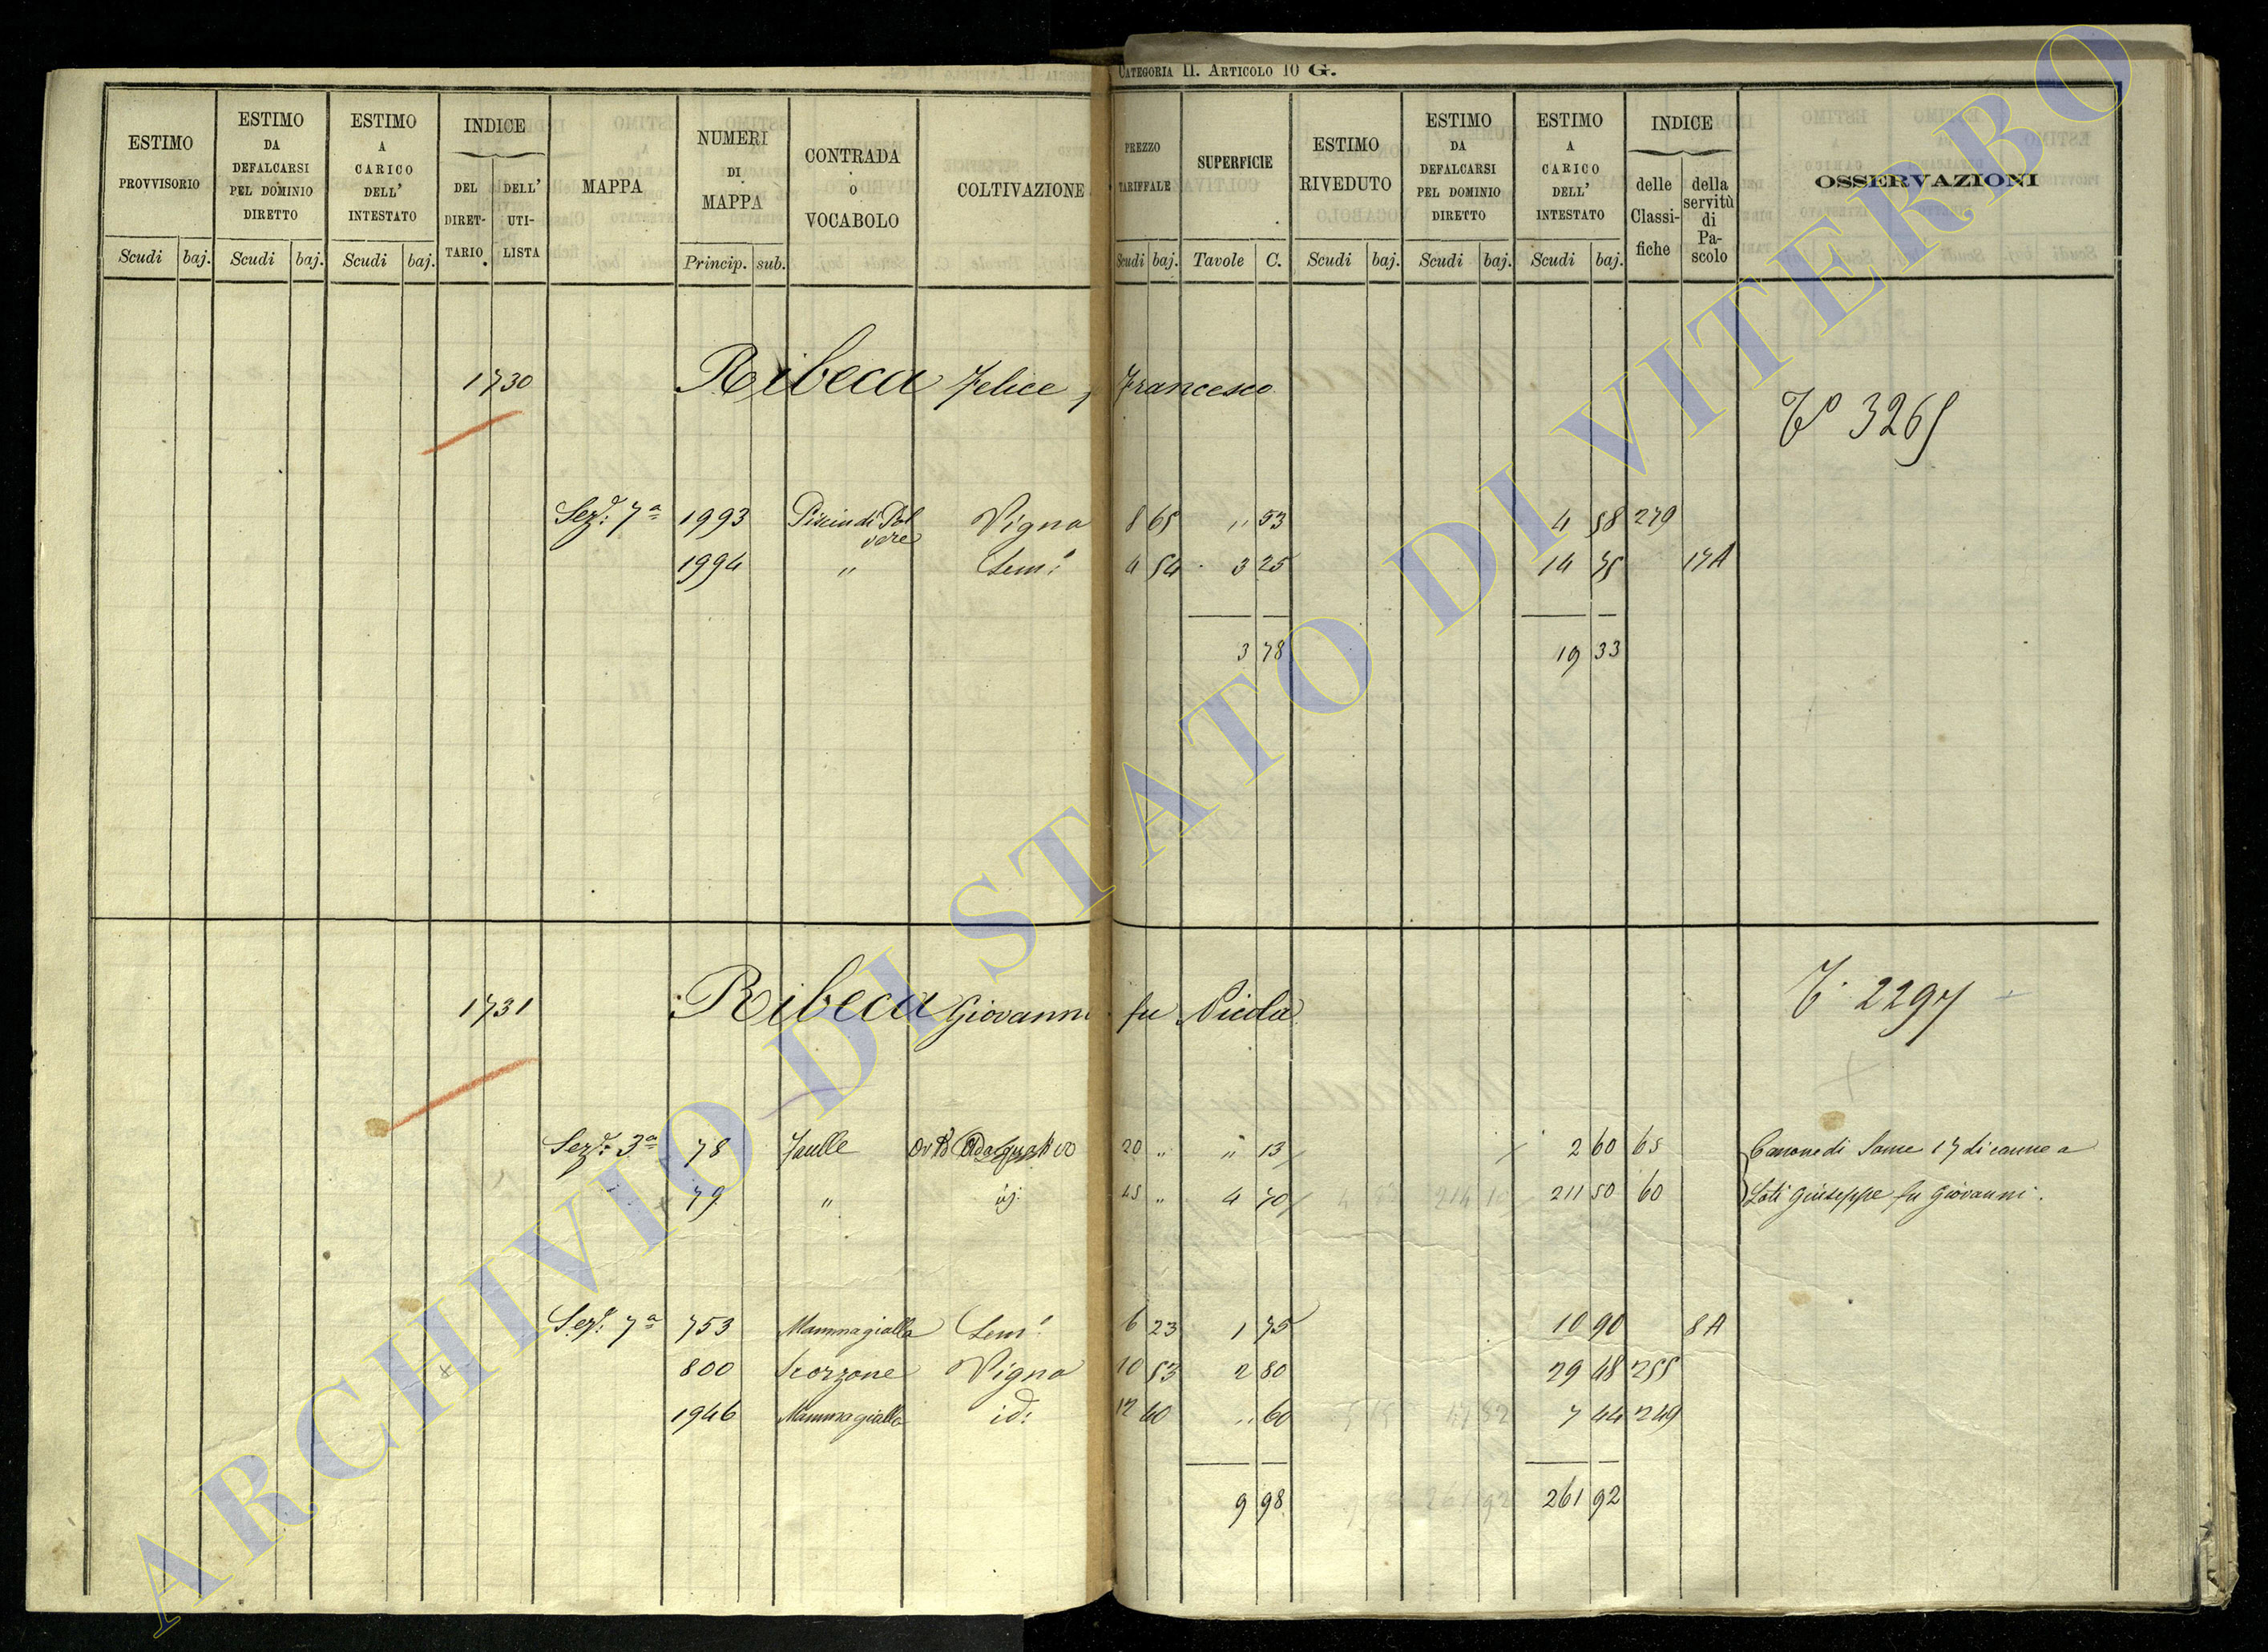 CATEGORIA II. ARTICOLO 10 G.
ESTIMO PROVVISORIO Scudi baj.
ESTIMO DA DEFALCARSI PEL DOMINIO DIRETTO Scudi baj.
ESTIMO A CARICO DELL' INTESTATO Scudi baj.
INDICE DEL DIRET- TARIO DELL' UTI- LISTA
MAPPA
NUMERI DI MAPPA Princip. sub.
CONTRADA O VOCABOLO
COLTIVAZIONE
PREZZO TARIFFALE Scudi baj.
SUPERFICIE Tavole C.
ESTIMO RIVEDUTO Scudi baj.
ESTIMO DA DEFALCARSI PEL DOMINIO DIRETTO Scudi baj.
ESTIMO A CARICO DELL' INTESTATO Scudi baj.
INDICE delle Classi- fiche della servitù di Pa- scolo
OSSERVAZIONI
1730 Ribeca Felice Francesco
3265
Sez: 7a 1993 Piscin di Pol vere Vigna 8 65 " 53 4 58 279
1994 " Sem: 4 54 3 25 14 75 17A
3 78 19 33
1731 Ribeca Giovanni fu Nicola
2297
Sez: 3a 78 Faulle 20 " " 13 2 60 65 Canone di Some 17 di canne a
79 " id: 45 " 4 70 211 50 60 Loti Giuseppe fu Giovanni.
Sez: 7a 753 Mammagialla Sem: 6 23 1 75 10 90 8A
800 Scorzone Vigna 10 53 2 80 29 48 255
1946 Mammagialla id: 12 40 " 60 7 44 249
9 98 261 92
ARCHIVIO DI STATO DI VITERBO